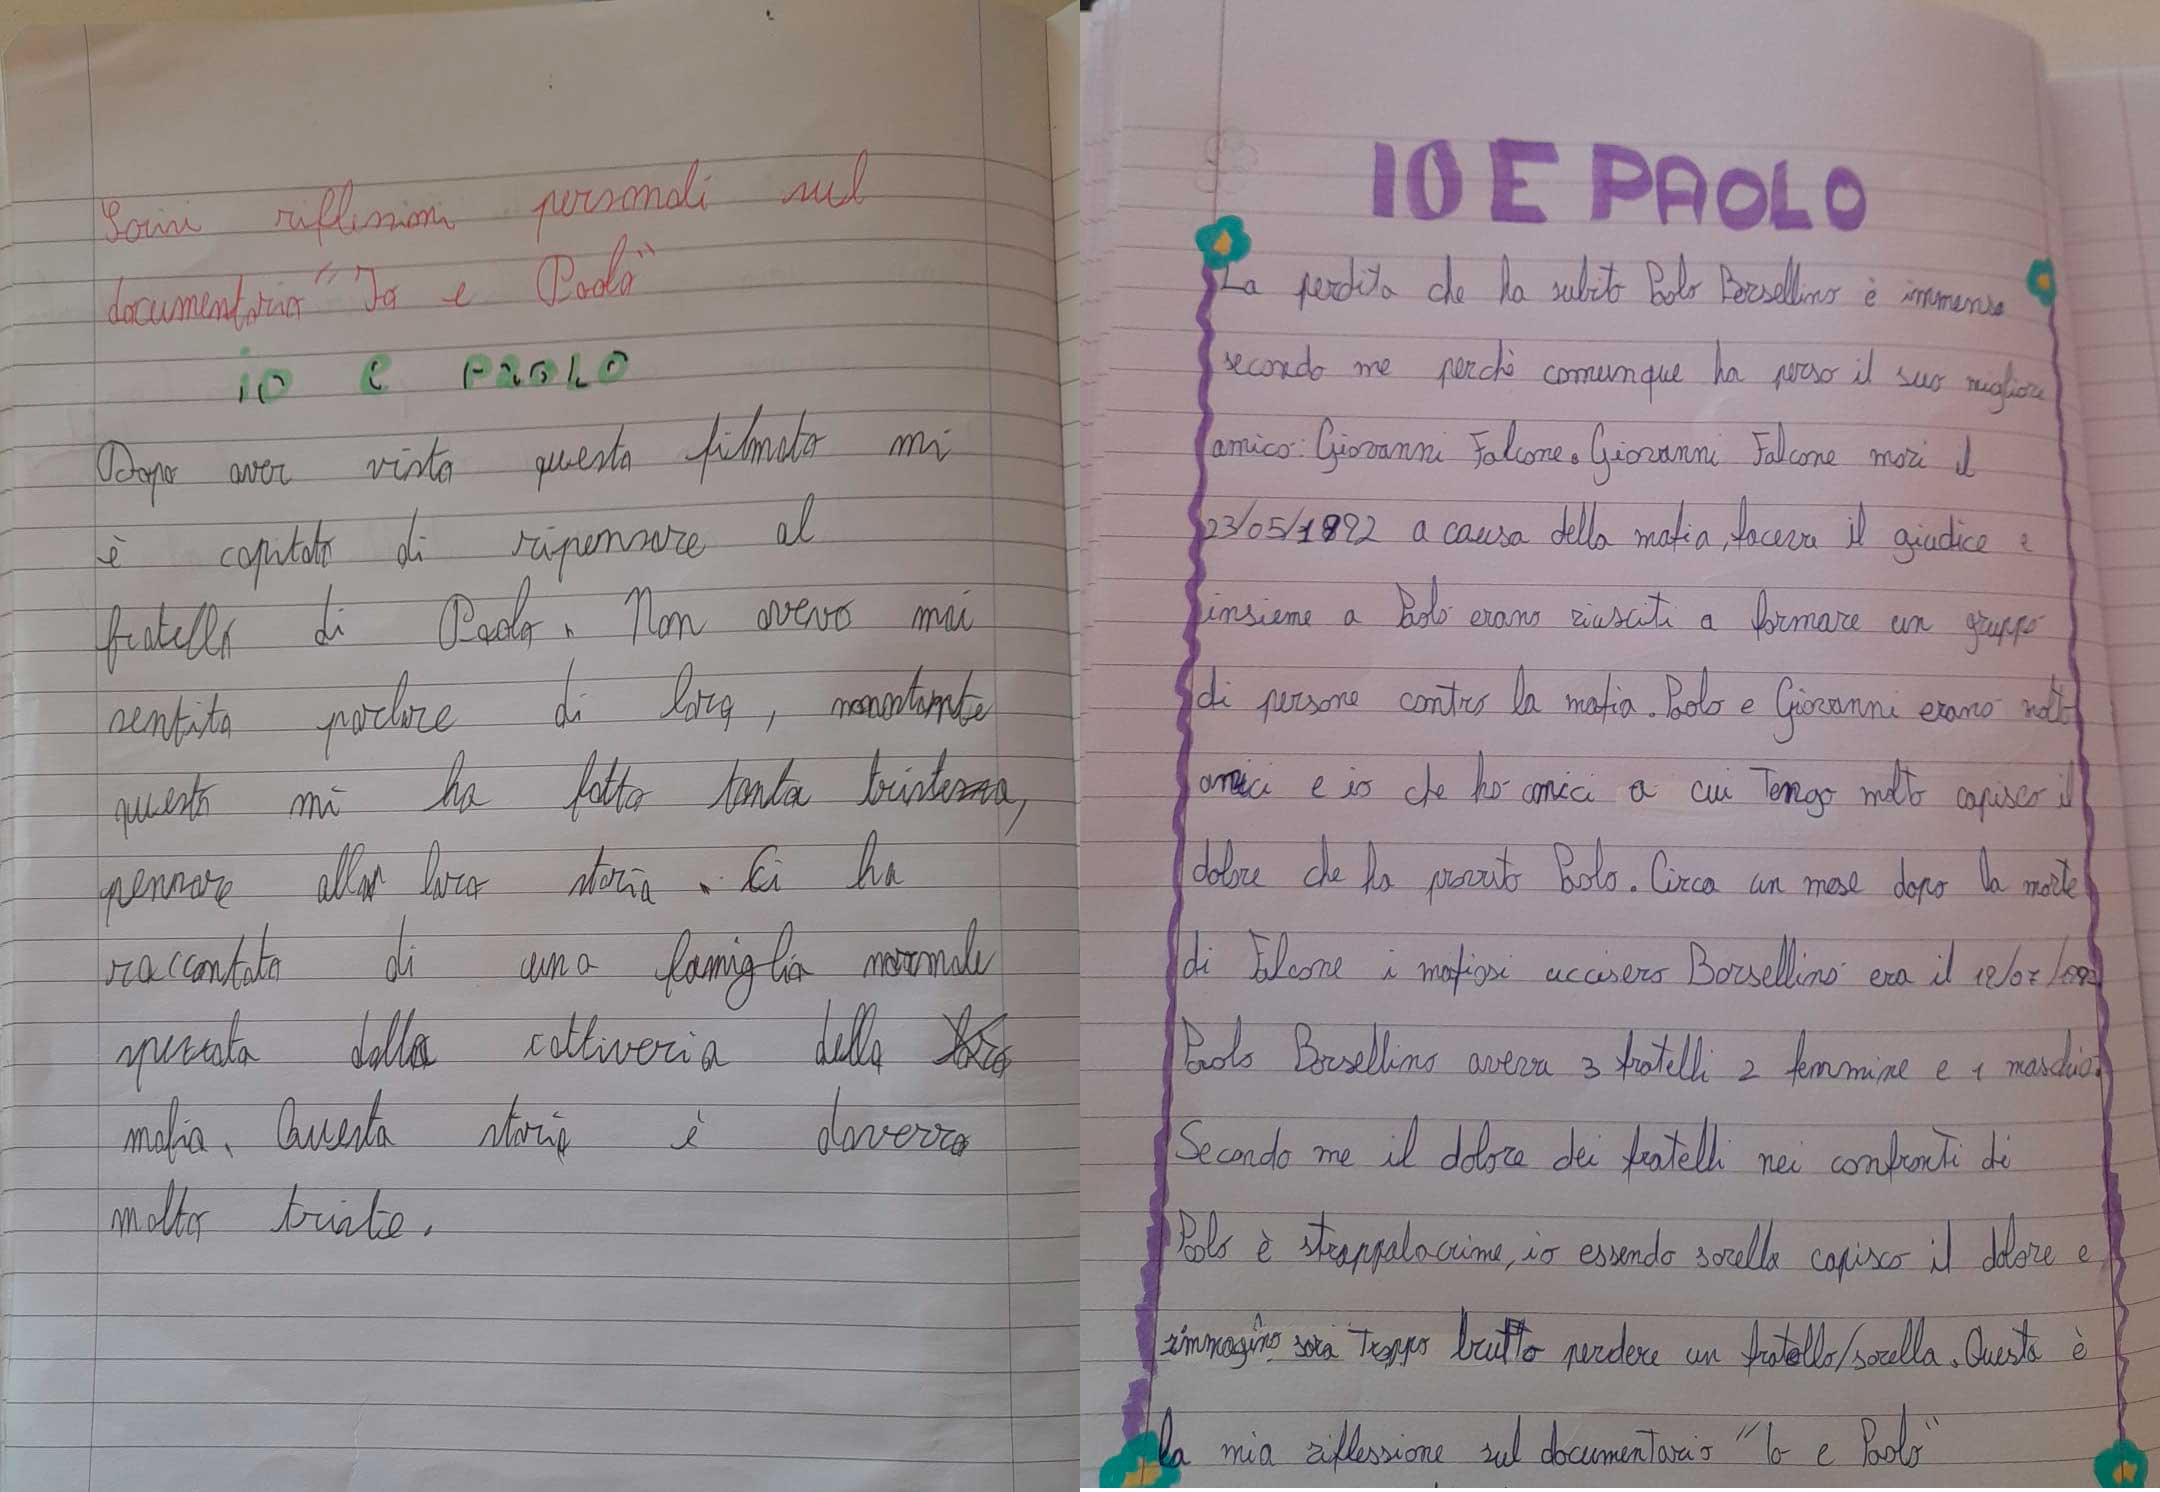 Scrivi riflessioni personali sul
documentario "Io e Paolo"
io e PAOLO
Dopo aver visto questo filmato mi
è capitato di ripensare al
fratello di Paolo. Non avevo mai
sentito parlare di loro, nonostante
questo mi ha fatto tanta tristezza,
pensare alla loro storia. Ci ha
raccontato di una famiglia normale
spezzata dalla cattiveria della
mafia. Questa storia è davvero
molto triste.
IO E PAOLO
La perdita che ha subito Paolo Borsellino è immensa
secondo me perchè comunque ha perso il suo migliore
amico: Giovanni Falcone. Giovanni Falcone morì il
23/05/1992 a causa della mafia, faceva il giudice e
insieme a Paolo erano riusciti a formare un gruppo
di persone contro la mafia. Paolo e Giovanni erano molto
amici e io che ho amici a cui Tengo molto capisco il
dolore che ha provato Paolo. Circa un mese dopo la morte
di Falcone i mafiosi uccisero Borsellino era il
Paolo Borsellino aveva 3 fratelli 2 femmine e 1 maschio.
Secondo me il dolore dei fratelli nei confronti di
Paolo è strappalacrime, io essendo sorella capisco il dolore e
immagino sarà Troppo brutto perdere un fratello/sorella. Questa è
la mia riflessione sul documentario "Io e Paolo"